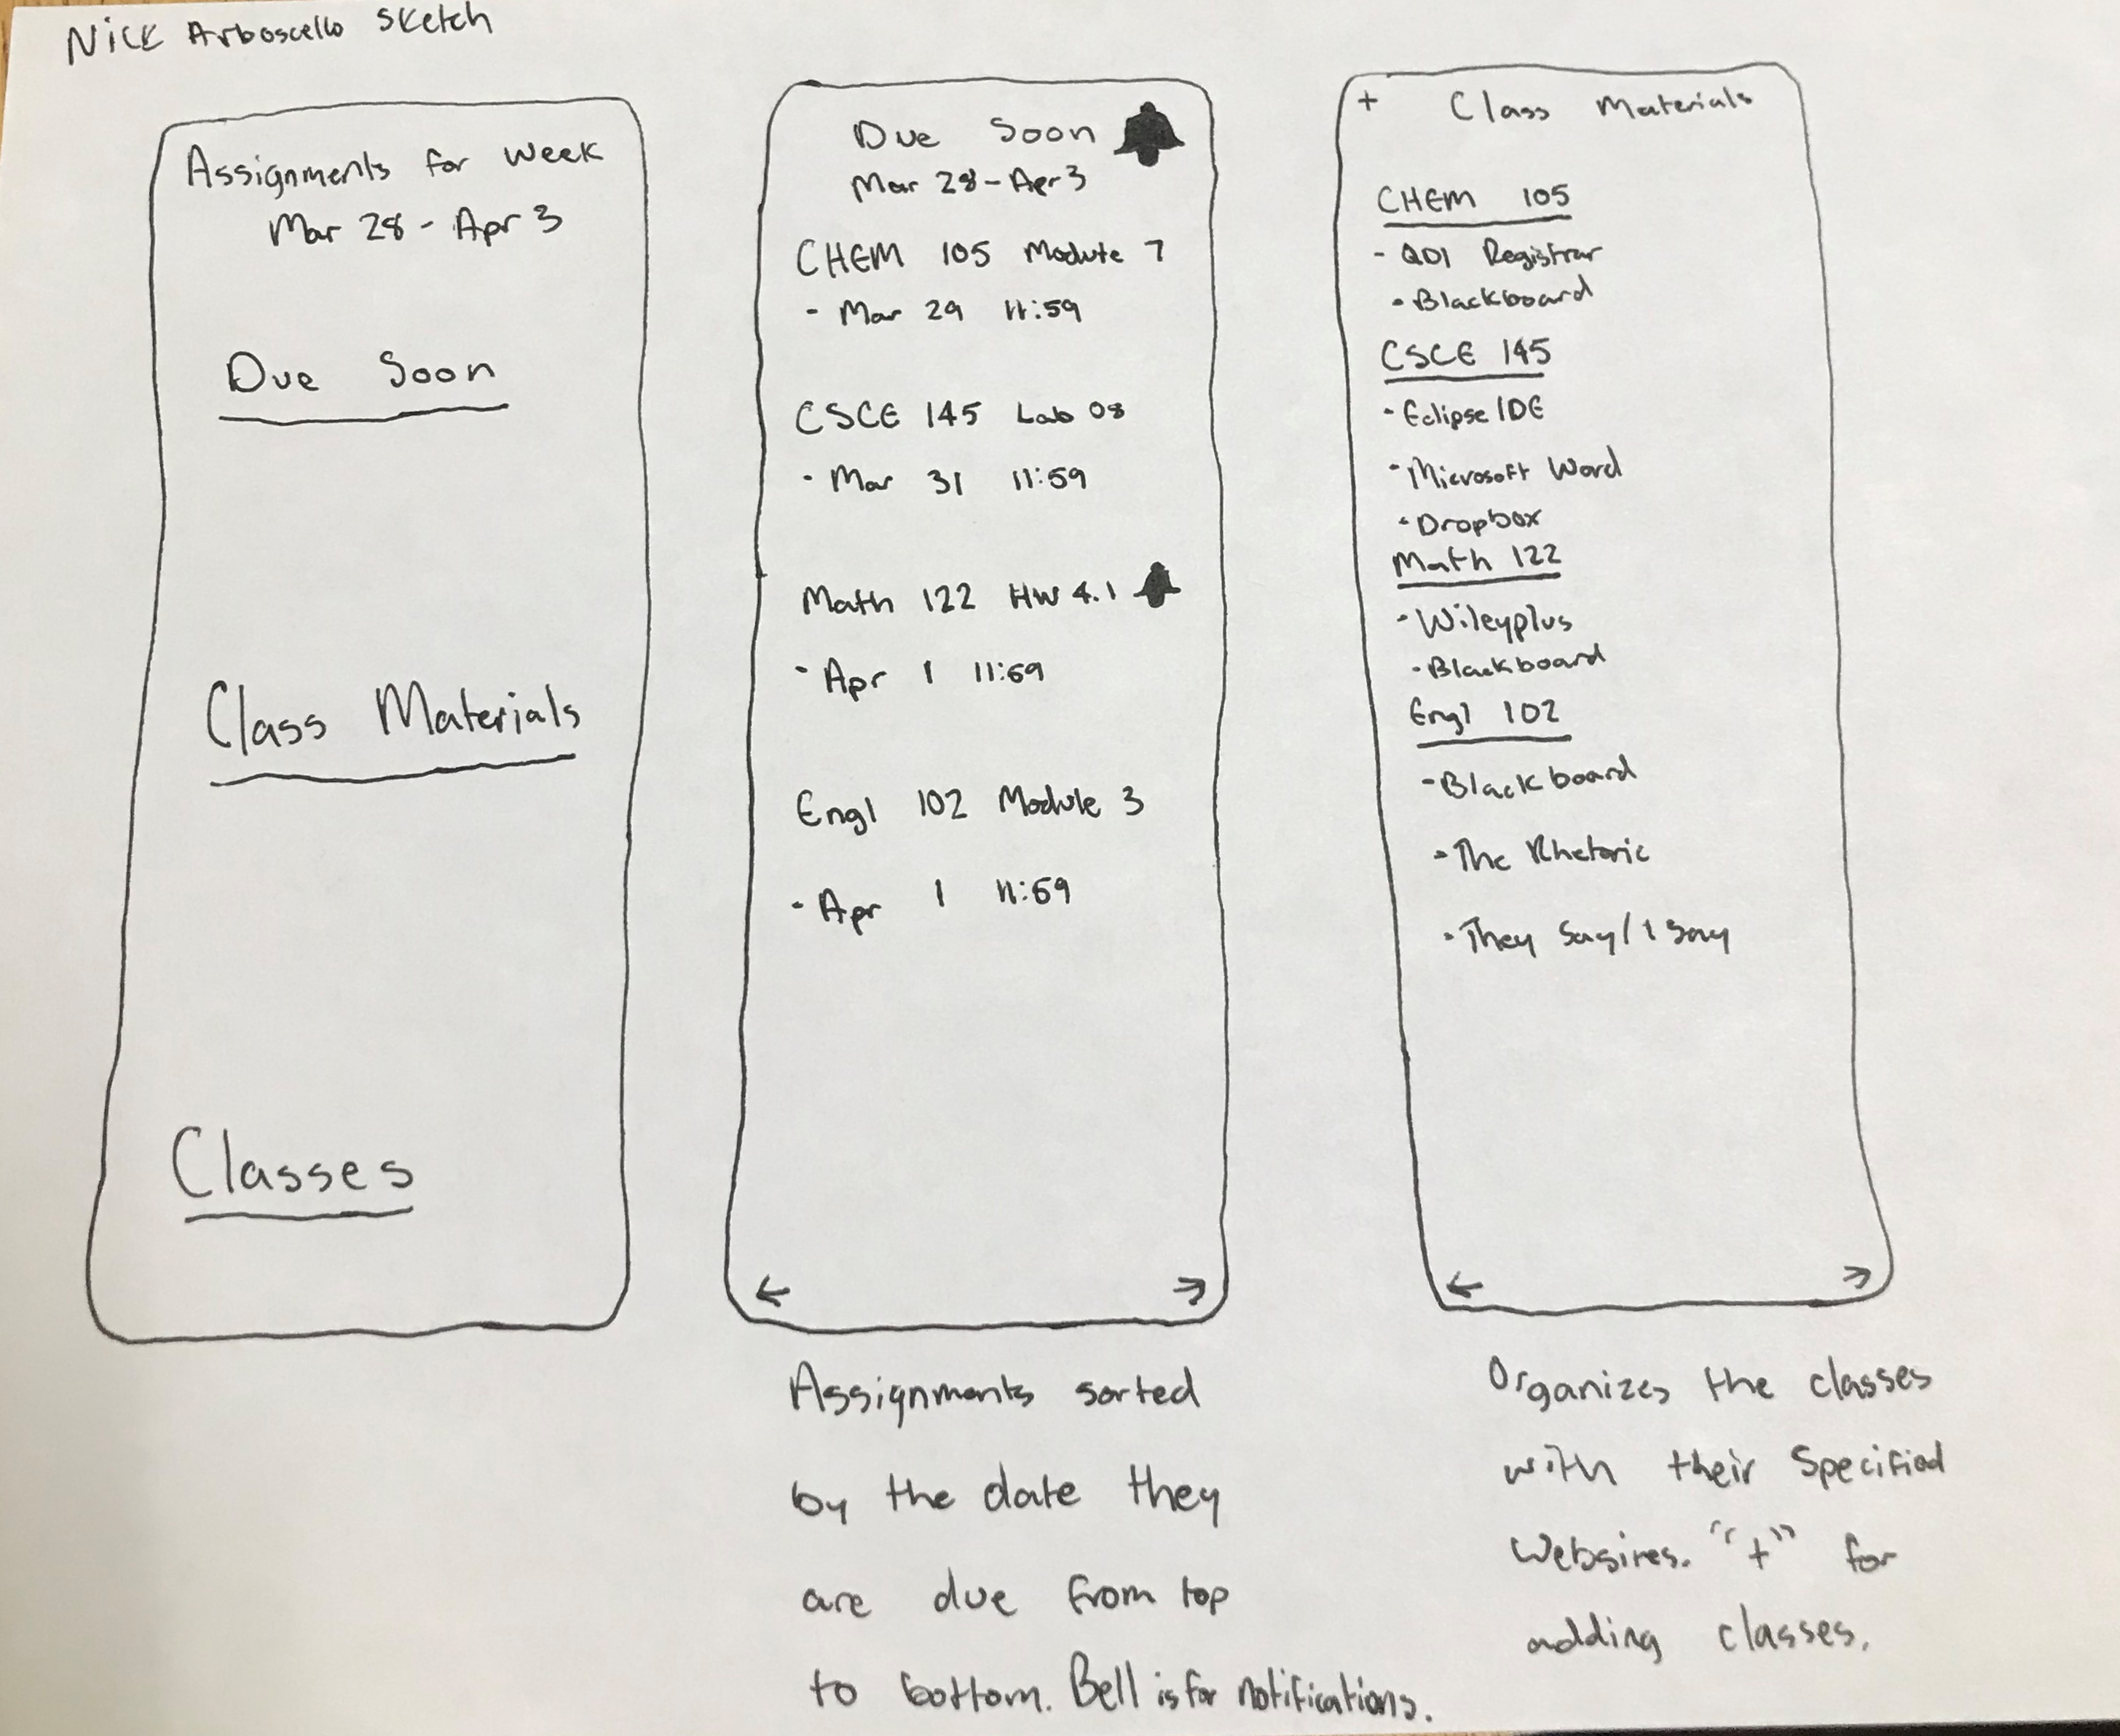 Nick Arboscello Sketch
Assignments for week
Mar 28 - Apr 3
Due Soon
Class Materials
Classes
Due Soon
Mar 28 - Apr 3
CHEM 105 Module 7
- Mar 29 11:59
CSCE 145 Lab 08
- Mar 31 11:59
Math 122 HW 4.1
- Apr 1 11:59
Engl 102 Module 3
- Apr 1 11:59
← →
Assignments sorted
by the date they
are due from top
to bottom. Bell is for notifications.
+ Class Materials
CHEM 105
- 101 Registrar
- Blackboard
CSCE 145
- Eclipse IDE
- Microsoft Word
- Dropbox
Math 122
- Wileyplus
- Blackboard
Engl 102
- Blackboard
- The Rhetoric
- They Say/I Say
← →
Organizes the classes
with their Specified
Websires. "+" for
adding classes.